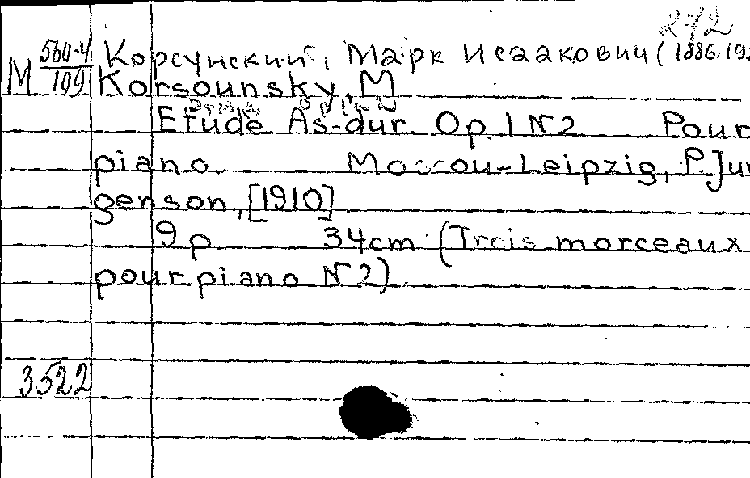 272
М 560-4/109 Корсунский, Марк Исаакович (1886-19
Korsounsky, M
Etude As-dur. Op. 1 N2 Pour
piano Moscou-Leipzig, P. Jur
genson, [1910]
9 p 34 cm (Trois morceaux
pour piano N2)
3522